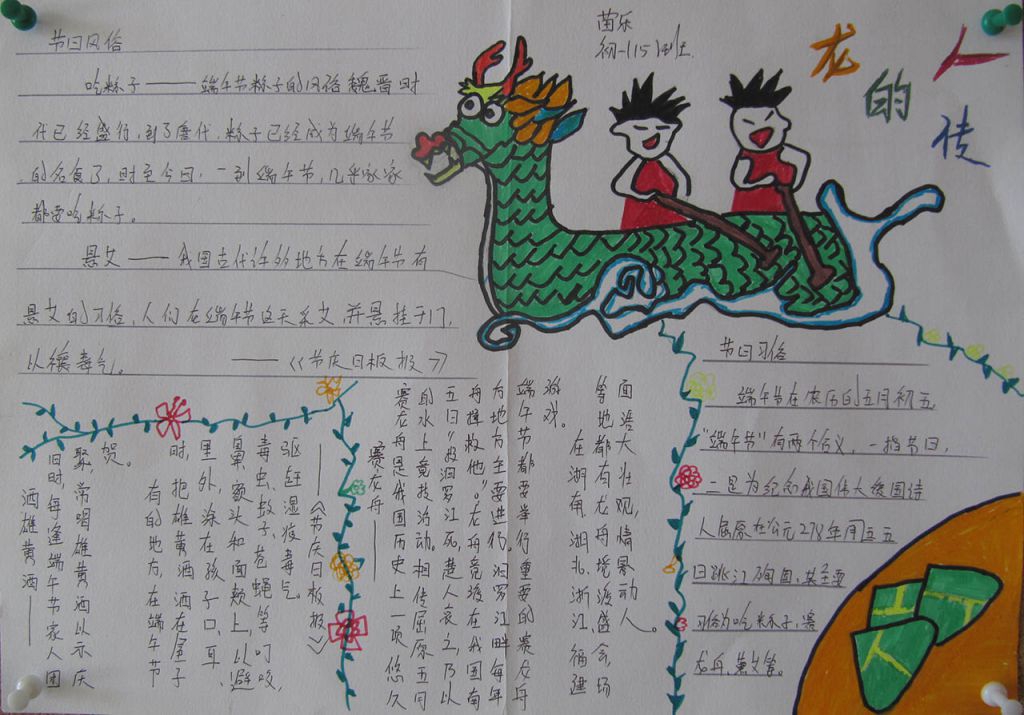 苗乐
初一(15)班
龙的传人
节日风俗
吃粽子——端午节粽子的风俗魏晋时
代已经盛行,到了唐代,粽子已经成为端午节
的名食了,时至今日,一到端午节,几乎家家
都要吃粽子。
悬艾——我国古代许多地方在端午节有
悬艾的习俗,人们在端午节这天采艾,并悬挂于门,
以禳毒气。——《节庆日板报》
节日习俗
端午节在农历的五月初五
"端午节"有两个含义,一指节日,
二是为纪念我国伟大爱国诗
人屈原在公元278年用五五
日跳江殉国,其主要
习俗为吃粽子,赛
龙舟,熏艾等。
赛龙舟——
赛龙舟是我国历史上一项悠久
的水上竞技活动。相传屈原五月
五日"投汨罗江死,楚人哀之,乃以
舟楫救他。"龙舟竞渡在我国南
方地方主要进行。汨罗江畔每年
端午节都要举行重要的赛龙舟
游戏。
在湖南、湖北、浙江、福建
等地都有龙舟竞渡盛会,场
面浩大壮观,情景动人。
酒雄黄酒——
旧时,每逢端午节家人团
聚,常喝雄黄酒以示庆
贺。
有的地方,在端午节
时,把雄黄酒洒在屋子
里外,涂在孩子口、耳、
鼻、额头和面颊上,以避
毒虫、蚊子、苍蝇等叮咬,
驱赶湿疫毒气。
——《节庆日板报》